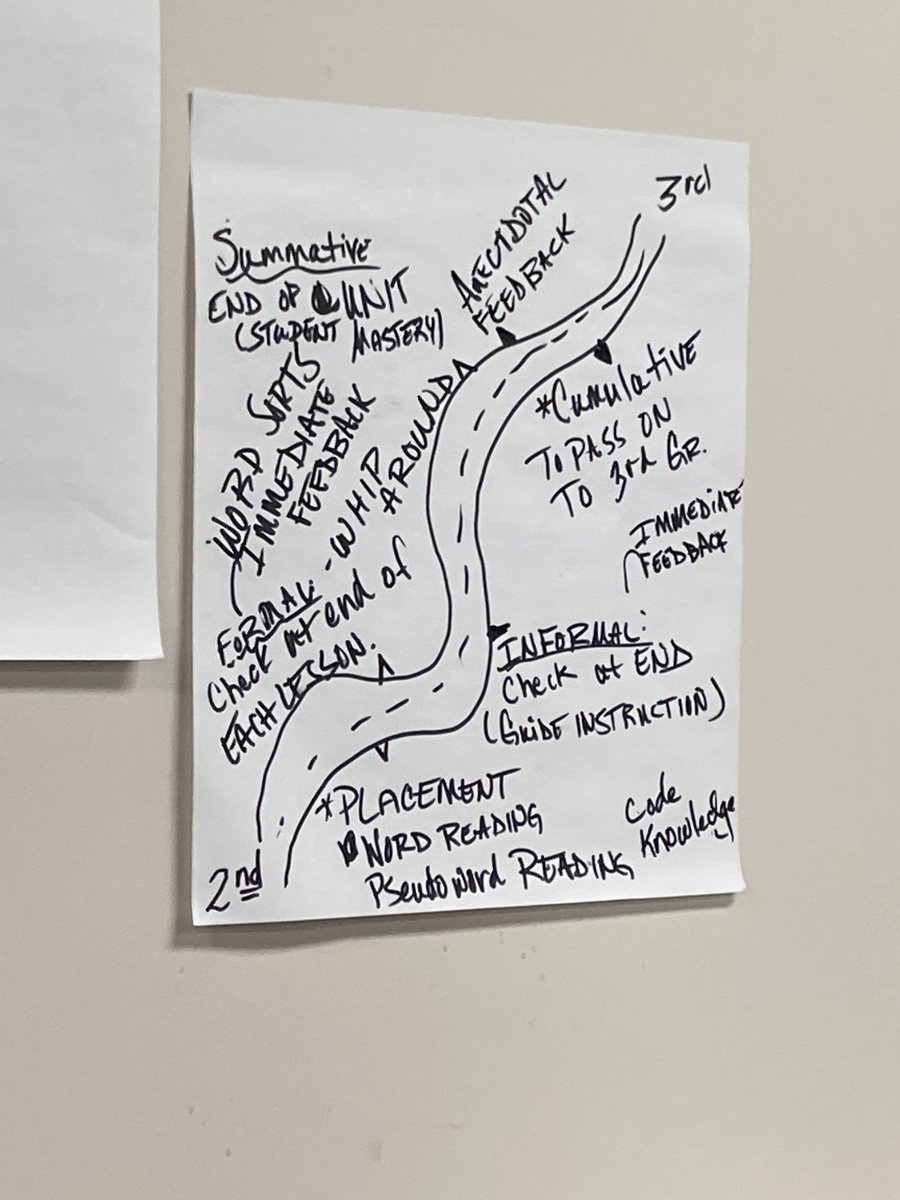 3rd
Summative
END OF UNIT
(STUDENT MASTERY)
ANECTDOTAL
FEEDBACK
WORD SORTS
IMMEDIATE
FEEDBACK
- WHIP
AROUND
*Cumulative
TO PASS ON
TO 3rd GR.
IMMEDIATE
FEEDBACK
FORMAL:
Check at end of
EACH LESSON.
INFORMAL:
Check at END
(GUIDE INSTRUCTION)
*PLACEMENT
WORD READING
PSeudoword READING
Code
Knowledge
2nd